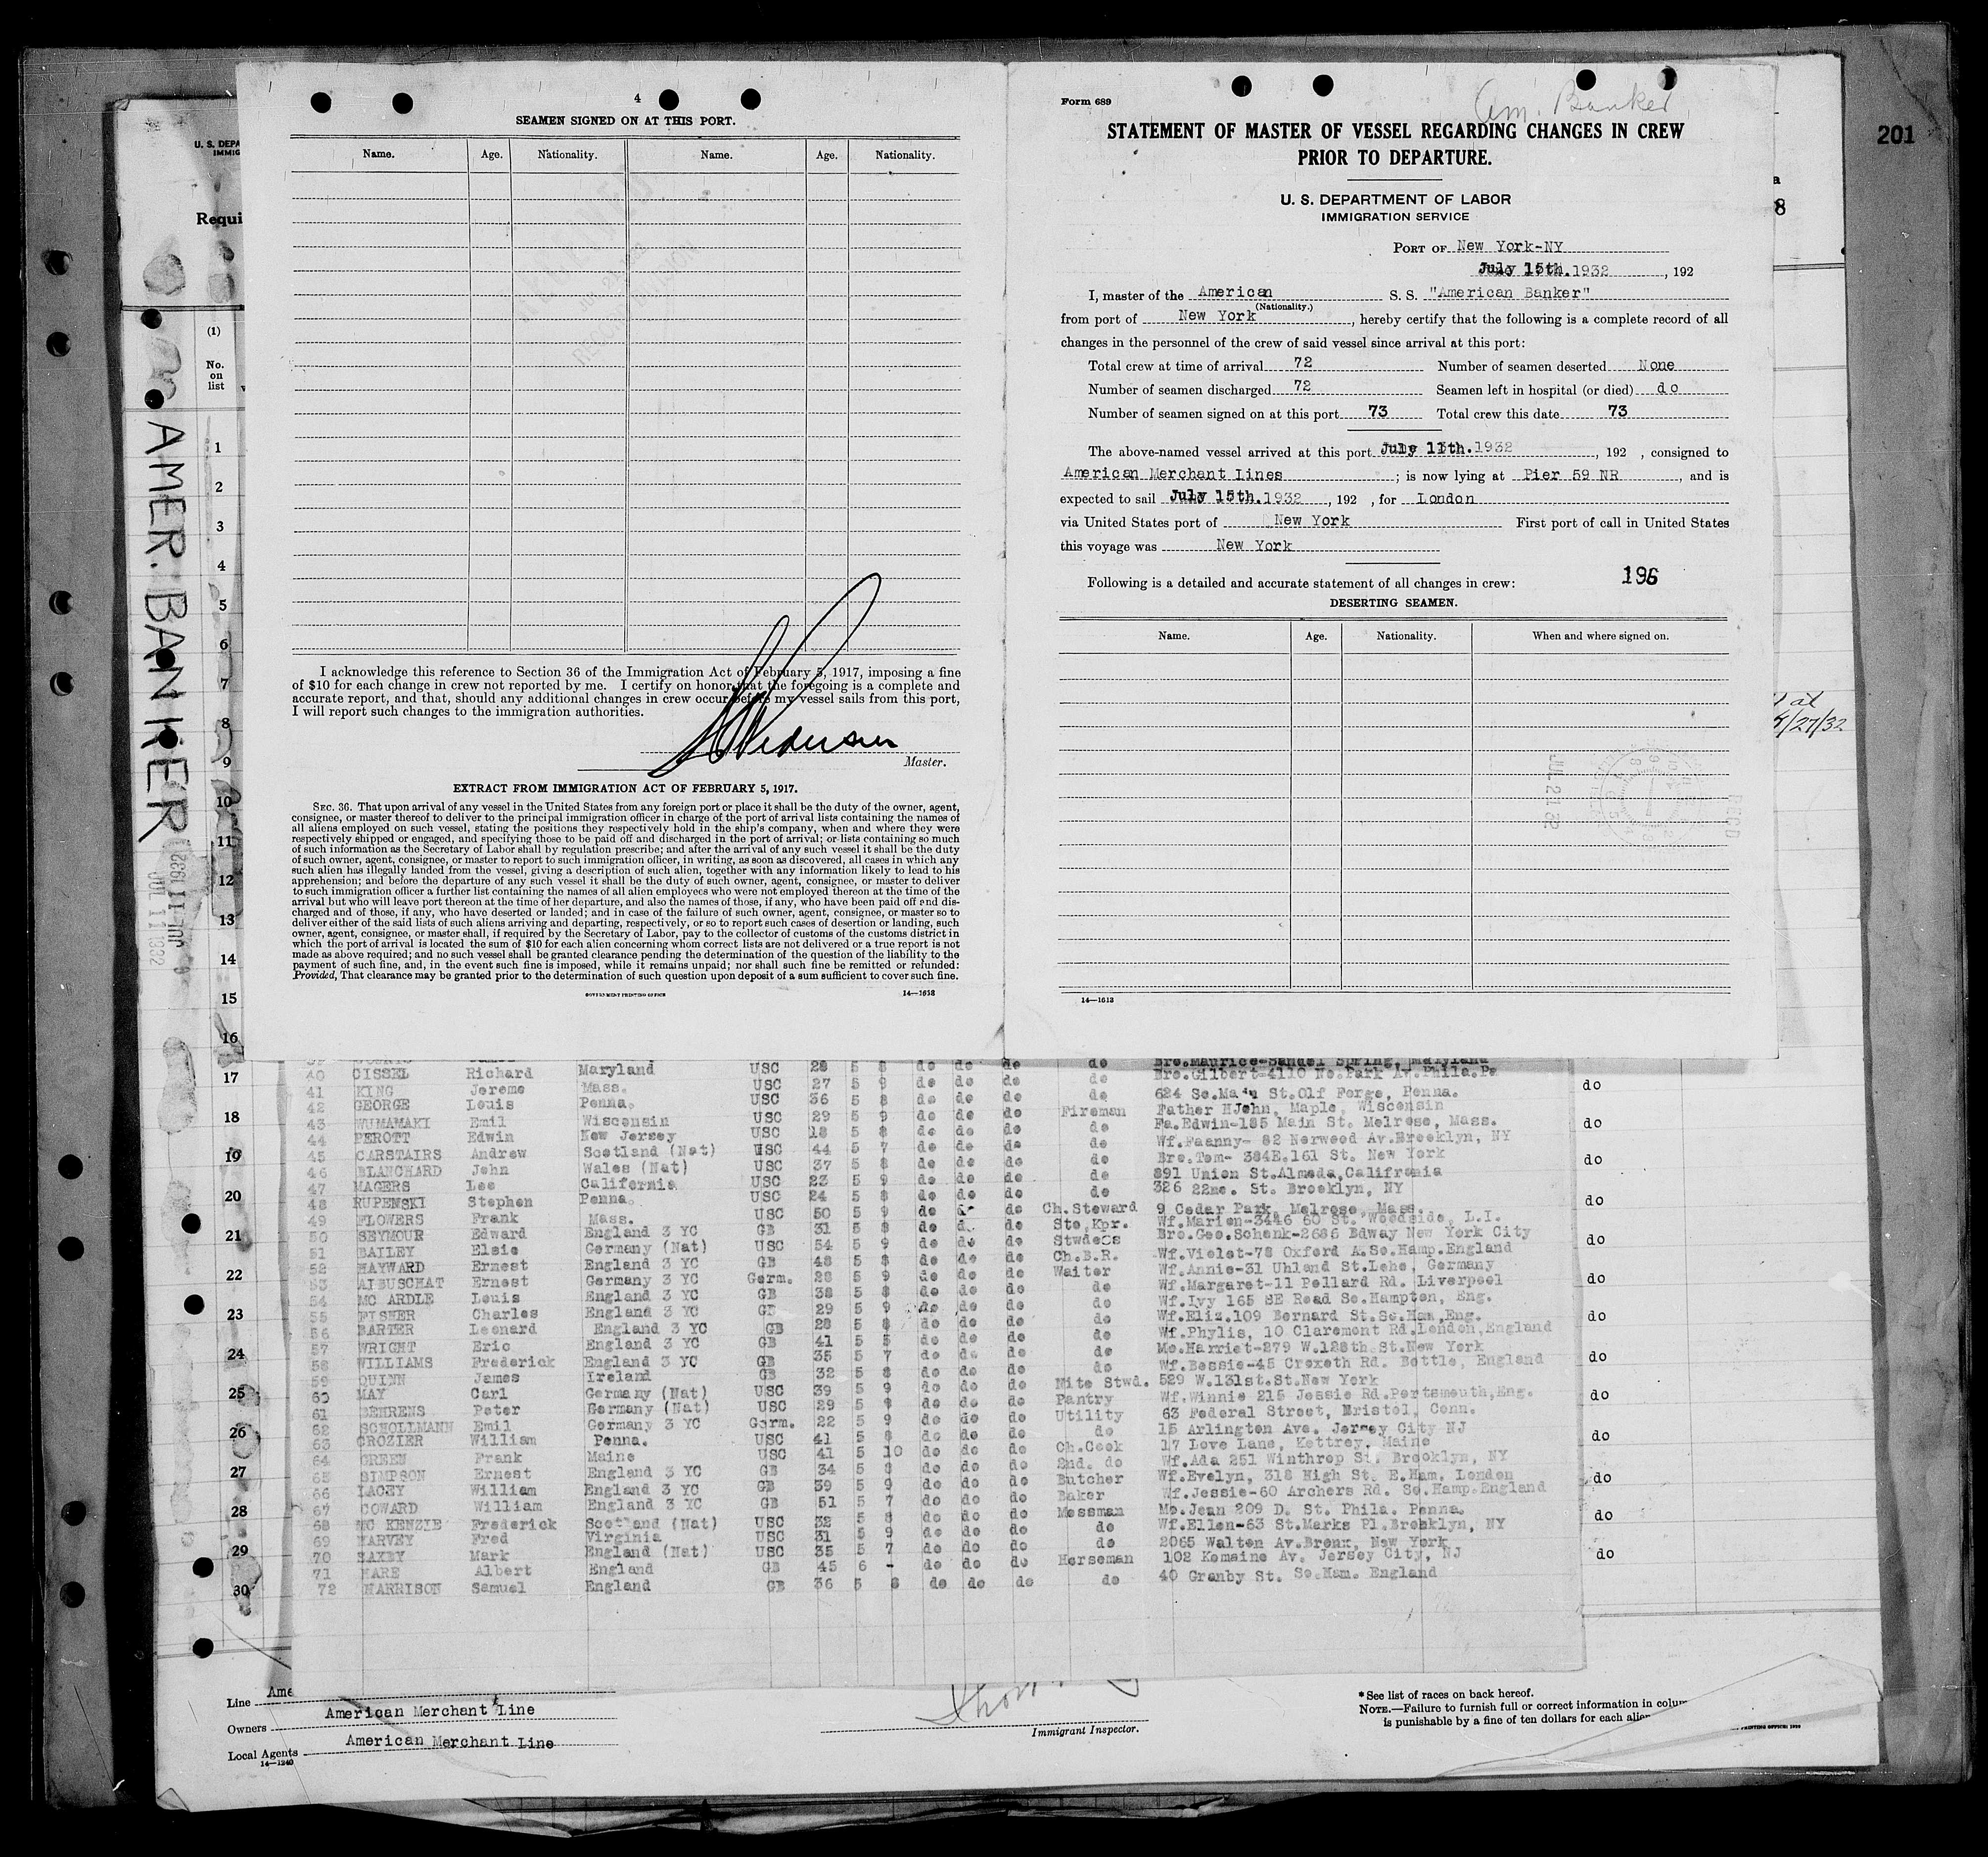 4
SEAMEN SIGNED ON AT THIS PORT.
Name. Age. Nationality. Name. Age. Nationality.
I acknowledge this reference to Section 36 of the Immigration Act of February 5, 1917, imposing a fine
of $10 for each change in crew not reported by me. I certify on honor that the foregoing is a complete and
accurate report, and that, should any additional changes in crew occur before my vessel sails from this port,
I will report such changes to the immigration authorities.
Master.
EXTRACT FROM IMMIGRATION ACT OF FEBRUARY 5, 1917.
SEC. 36. That upon arrival of any vessel in the United States from any foreign port or place it shall be the duty of the owner, agent,
consignee, or master thereof to deliver to the principal immigration officer in charge of the port of arrival lists containing the names of
all aliens employed on such vessel, stating the positions they respectively hold in the ship's company, when and where they were
respectively shipped or engaged, and specifying those to be paid off and discharged in the port of arrival; or lists containing so much
of such information as the Secretary of Labor shall by regulation prescribe; and after the arrival of any such vessel it shall be the duty
of such owner, agent, consignee, or master to report to such immigration officer, in writing, as soon as discovered, all cases in which any
such alien has illegally landed from the vessel, giving a description of such alien, together with any information likely to lead to his
apprehension; and before the departure of any such vessel it shall be the duty of such owner, agent, consignee, or master to deliver
to such immigration officer a further list containing the names of all alien employees who were not employed thereon at the time of the
arrival but who will leave port thereon at the time of her departure, and also the names of those, if any, who have been paid off and dis-
charged and of those, if any, who have deserted or landed; and in case of the failure of such owner, agent, consignee, or master so to
deliver either of the said lists of such aliens arriving and departing, respectively, or so to report such cases of desertion or landing, such
owner, agent, consignee, or master shall, if required by the Secretary of Labor, pay to the collector of customs of the customs district in
which the port of arrival is located the sum of $10 for each alien concerning whom correct lists are not delivered or a true report is not
made as above required; and no such vessel shall be granted clearance pending the determination of the question of the liability to the
payment of such fine, and, in the event such fine is imposed, while it remains unpaid; nor shall such fine be remitted or refunded:
Provided, That clearance may be granted prior to the determination of such question upon deposit of a sum sufficient to cover such fine.
GOVERNMENT PRINTING OFFICE 14—1613
Form 689
Am. Banker
STATEMENT OF MASTER OF VESSEL REGARDING CHANGES IN CREW
PRIOR TO DEPARTURE.
U. S. DEPARTMENT OF LABOR
IMMIGRATION SERVICE
PORT OF New York-NY
July 15th. 1932, 192
I, master of the American S. S. "American Banker"
(Nationality.)
from port of New York, hereby certify that the following is a complete record of all
changes in the personnel of the crew of said vessel since arrival at this port:
Total crew at time of arrival 72 Number of seamen deserted None
Number of seamen discharged 72 Seamen left in hospital (or died) do
Number of seamen signed on at this port 73 Total crew this date 73
The above-named vessel arrived at this port July 11th. 1932, 192 , consigned to
American Merchant Lines; is now lying at Pier 59 NR, and is
expected to sail July 15th. 1932, 192 , for London
via United States port of New York First port of call in United States
this voyage was New York
Following is a detailed and accurate statement of all changes in crew: 196
DESERTING SEAMEN.
Name. Age. Nationality. When and where signed on.
JUL 21 32
14—1613
201
U. S. DEPA
IMMIG
Requi
(1)
No.
on
list
AMER. BANKER
JUL 11 1932
JUL 11 1932
1
2
3
4
5
6
7
8
9
10
11
12
13
14
15
16
17
18
19
20
21
22
23
24
25
26
27
28
29
30
Bro.Maurice-Sandel Spring, Maryland
40 CISSEL Richard Maryland USC 28 5 8 do do do do Bro.Gilbert-4110 No.Park Av.Phila.Pa
41 KING Jerome Mass. USC 27 5 9 do do do do 624 So.Main St.Olf Forge, Penna.
42 GEORGE Louis Penna. USC 36 5 8 do do do Fireman Father HJohn, Maple, Wisconsin
43 WUMAMAKI Emil Wisconsin USC 29 5 9 do do do do Fa.Edwin-185 Main St. Melrose, Mass.
44 PEROTT Edwin New Jersey USC 18 5 8 do do do do Wf.Faanny- 82 Norwood Av.Brooklyn, NY
45 CARSTAIRS Andrew Scotland (Nat) USC 44 5 7 do do do do Bro.Tom- 384E.161 St. New York
46 BLANCHARD John Wales (Nat) USC 37 5 8 do do do do 891 Union St.Almeda,Califrania
47 MAGERS Lee California USC 23 5 9 do do do do 326 22me. St. Brooklyn, NY
48 RUPENSKI Stephen Penna. USC 24 5 8 do do do
49 FLOWERS Frank Mass. USC 50 5 9 do do do Ch.Steward 9 Cedar Park, Melrose, Mass.
50 SEYMOUR Edward England 3 YC GB 31 5 8 do do do Sto.Kpr. Wf.Marion-3446 60 St. Woodside, L.I.
51 BAILEY Elsie Germany (Nat) USC 54 5 9 do do do Stwdess Bro.Geo.Schenk-2686 Bdway New York City
52 HAYWARD Ernest England 3 YC GB 48 5 8 do do do Ch.B.R. Wf.Violet-78 Oxford A.So.Hamp.England
53 AIBUSCHAT Ernest Germany 3 YC Germ. 28 5 9 do do do Waiter Wf.Annie-31 Uhland St.Lehe, Germany
54 MC ARDLE Louis England 3 YC GB 38 5 8 do do do do Wf.Margaret-11 Pollard Rd. Liverpool
55 FISHER Charles England 3 YC GB 29 5 9 do do do do Wf.Ivy 165 SE Road So.Hampton, Eng.
56 BARTER Leonard England 3 YC GB 28 5 8 do do do do Wf.Eliz.109 Bernard St.So.Ham,Eng.
57 WRIGHT Eric England 3 YC GB 41 5 5 do do do do Wf.Phylis, 10 Claremont Rd.London,England
58 WILLIAMS Frederick England 3 YC GB 35 5 7 do do do do Mo.Harriet-279 W.128th St.New York
59 QUINN James Ireland GB 32 5 8 do do do do Wf.Bessie-45 Croxeth Rd. Bottle, England
60 MAY Carl Germany (Nat) USC 39 5 9 do do do Nite Stwd. 529 W.131st.St.New York
61 BEHRENS Peter Germany (Nat) USC 29 5 8 do do do Pantry Wf.Winnie 215 Jessie Rd.Portsmouth,Eng.
62 SCHOLLMANN Emil Germany 3 YC Germ. 22 5 9 do do do Utility 63 Federal Street, Bristol, Conn.
63 CROZIER William Penna. USC 41 5 8 do do do do 15 Arlington Ave. Jersey City NJ
64 GREEN Frank Maine USC 41 5 10 do do do Ch.Cook 17 Love Lane, Kettrey, Maine
65 SIMPSON Ernest England 3 YC GB 34 5 8 do do do 2nd. do Wf.Ada 251 Winthrop St. Brooklyn, NY
66 LACEY William England 3 YC GB 39 5 9 do do do Butcher Wf.Evelyn, 318 High St. E.Ham, London
67 COWARD William England 3 YC GB 51 5 7 do do do Baker Wf.Jessie-60 Archers Rd. So.Hamp.England
68 MC KENZIE Frederick Scotland (Nat) USC 32 5 8 do do do Messman Mo.Jean 209 D. St. Phila. Penna.
69 HARVEY Fred Virginia USC 31 5 9 do do do do Wf.Ellen-63 St.Marks Pl.Brooklyn, NY
70 SAXBY Mark England (Nat) USC 35 5 7 do do do do 2065 Walton Av.Bronx, New York
71 HARE Albert England GB 45 6 - do do do Horseman 102 Romaine Av. Jersey City, NJ
72 HARRISON Samuel England GB 36 5 8 do do do do 40 Granby St. So.Ham. England
do
do
do
do
do
do
do
do
do
do
do
do
do
at
/27/32
Line Ame
Owners American Merchant Line
Local Agents American Merchant Line
14—1240
Immigrant Inspector.
* See list of races on back hereof.
NOTE.—Failure to furnish full or correct information in colum
is punishable by a fine of ten dollars for each alien